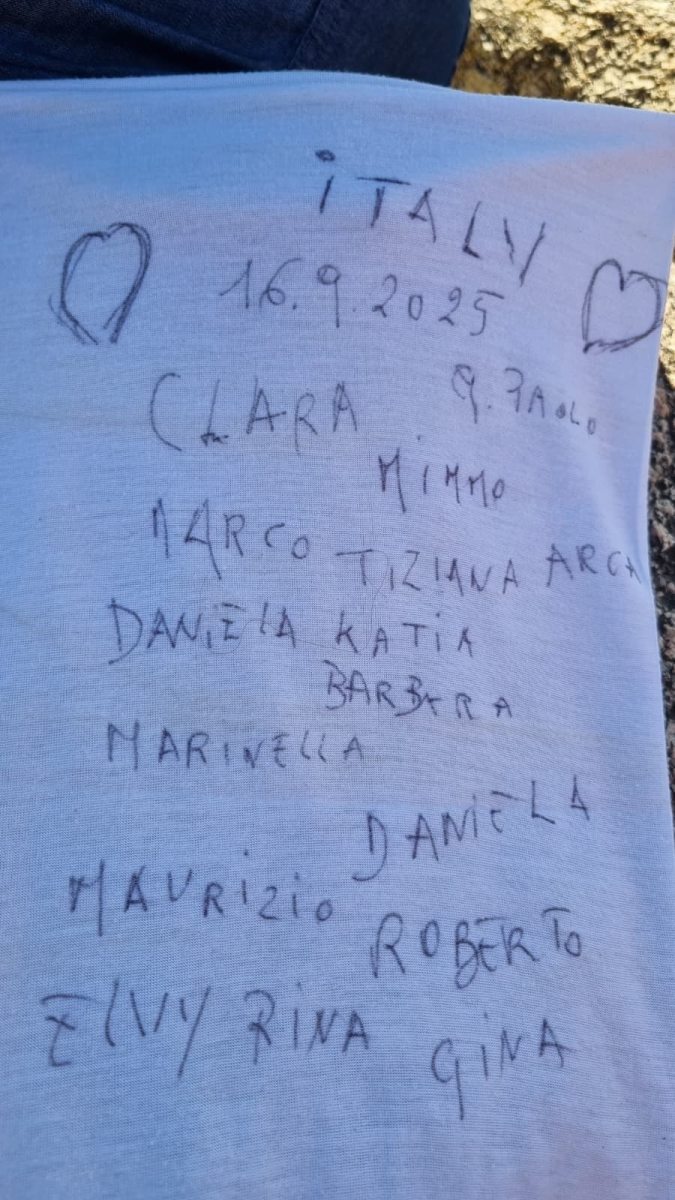 iTALY
16.9.2025
CLARA G.PAOLO
MiMMO
MARCO TIZIANA ARCA
DANiELA KATiA
BARBARA
MARINELLA
DANiELA
MAURiZiO
ROBERTO
ELVY RiNA GiNA